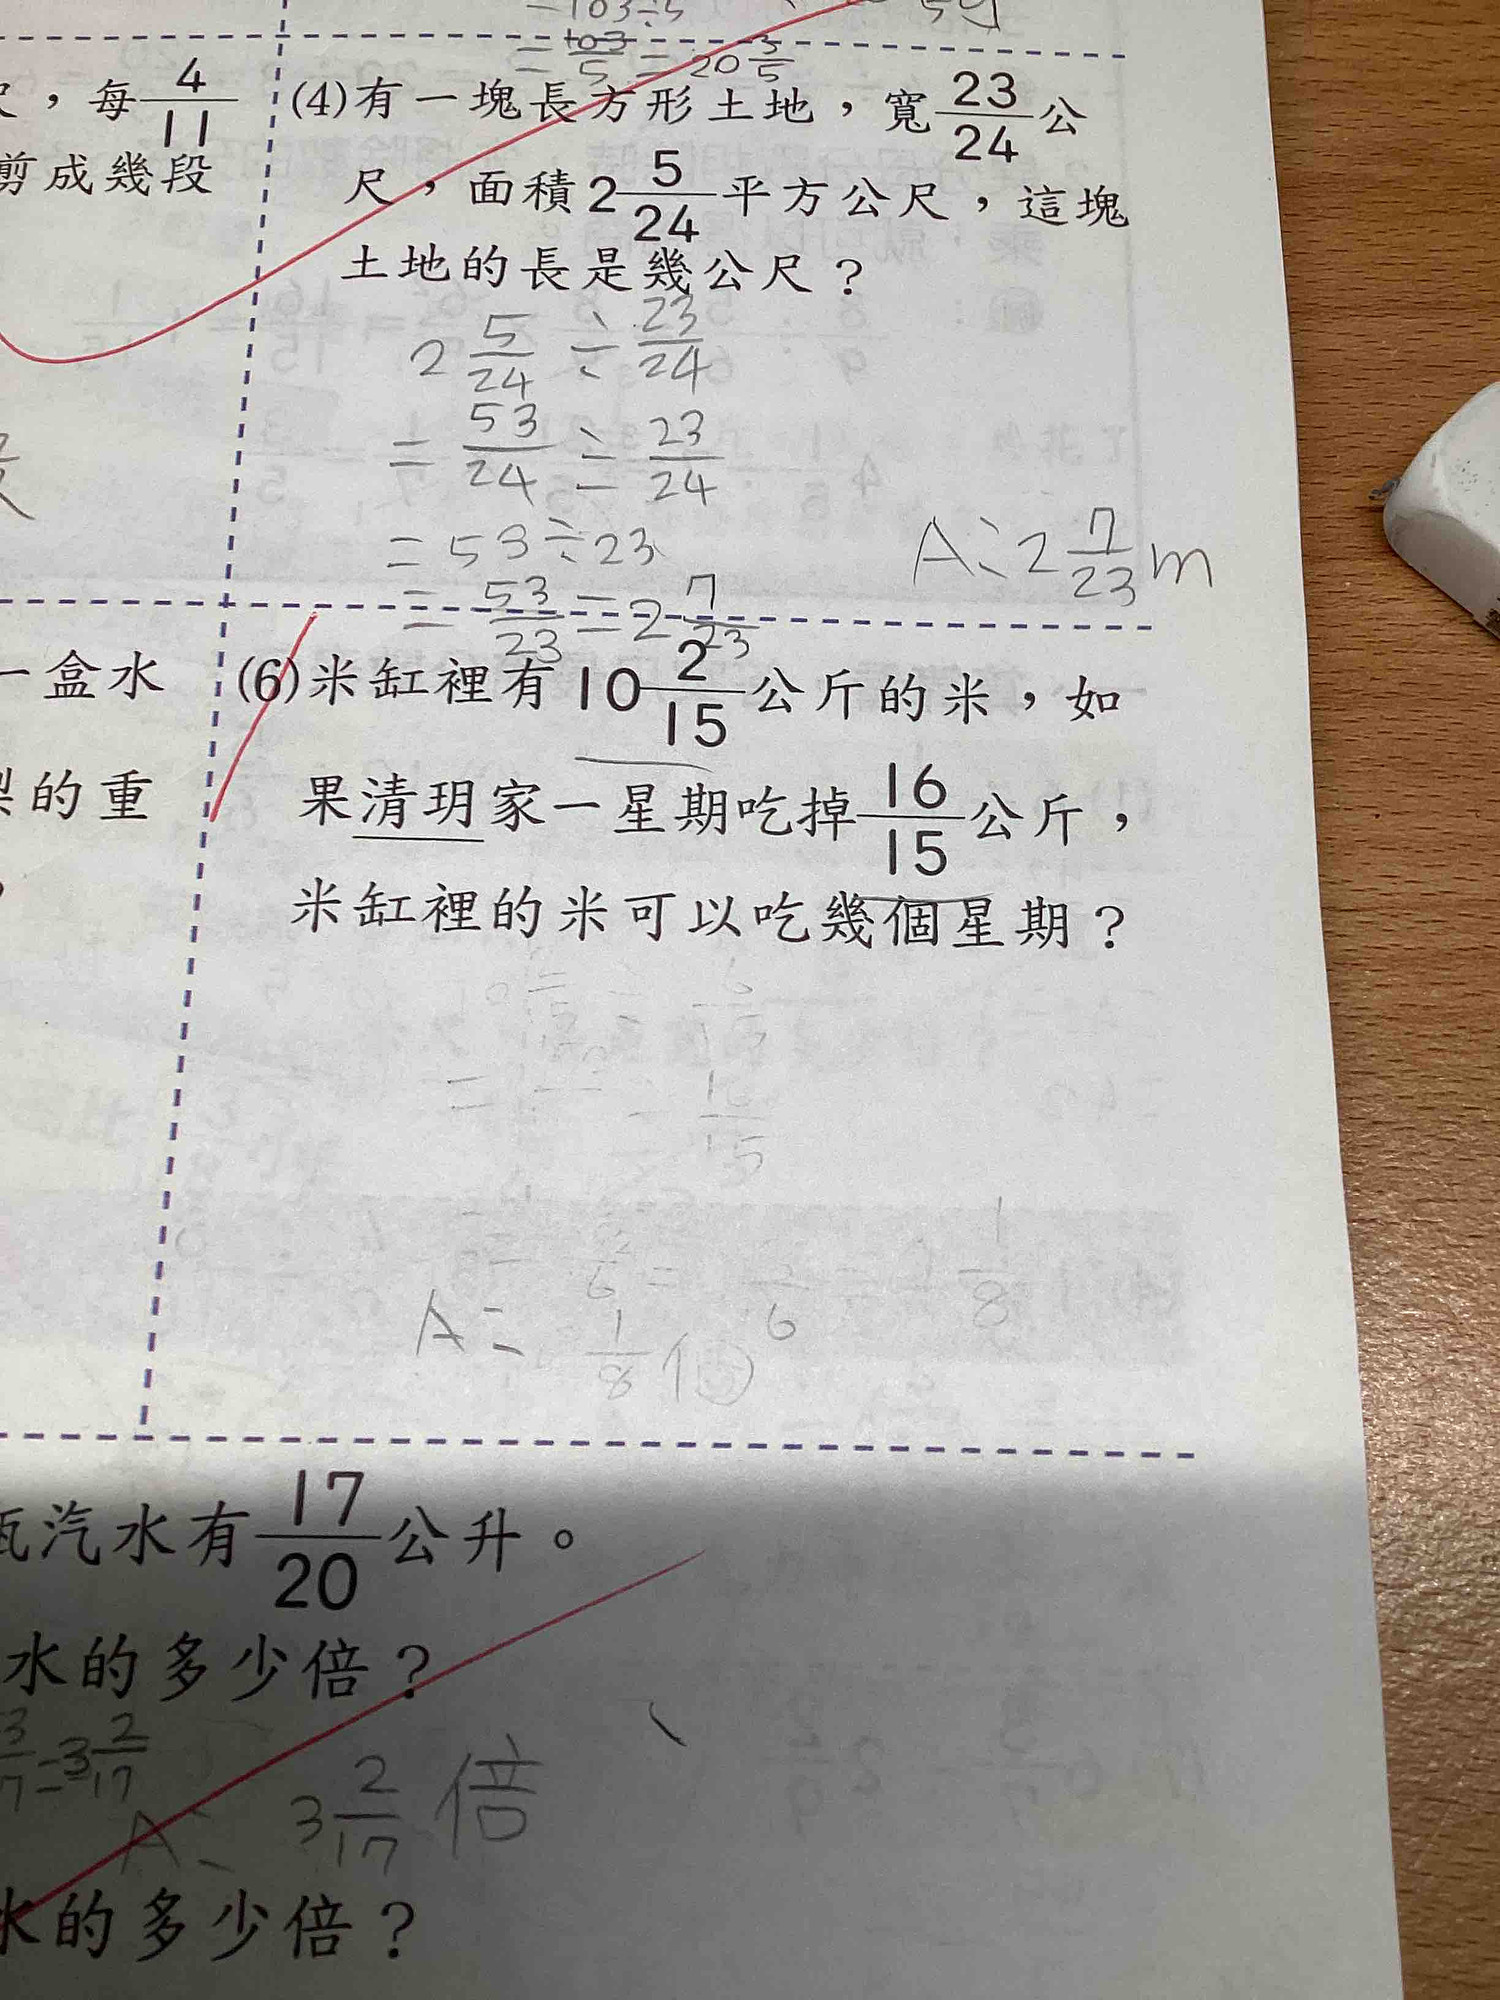 =103÷5
= 103/5 = 20 3/5
尺，每 4/11
剪成幾段
(4)有一塊長方形土地，寬 23/24 公
尺，面積 2 5/24 平方公尺，這塊
土地的長是幾公尺？
2 5/24 ÷ 23/24
= 53/24 ÷ 23/24
= 53÷23
= 53/23 = 2 7/23
A: 2 7/23 m
一盒水
梨的重
(6)米缸裡有 10 2/15 公斤的米，如
果清玥家一星期吃掉 16/15 公斤，
米缸裡的米可以吃幾個星期？
= 16/15
1/8
A: 1/8 個
瓶汽水有 17/20 公升。
水的多少倍？
= 3 2/17
A: 3 2/17 倍
水的多少倍？